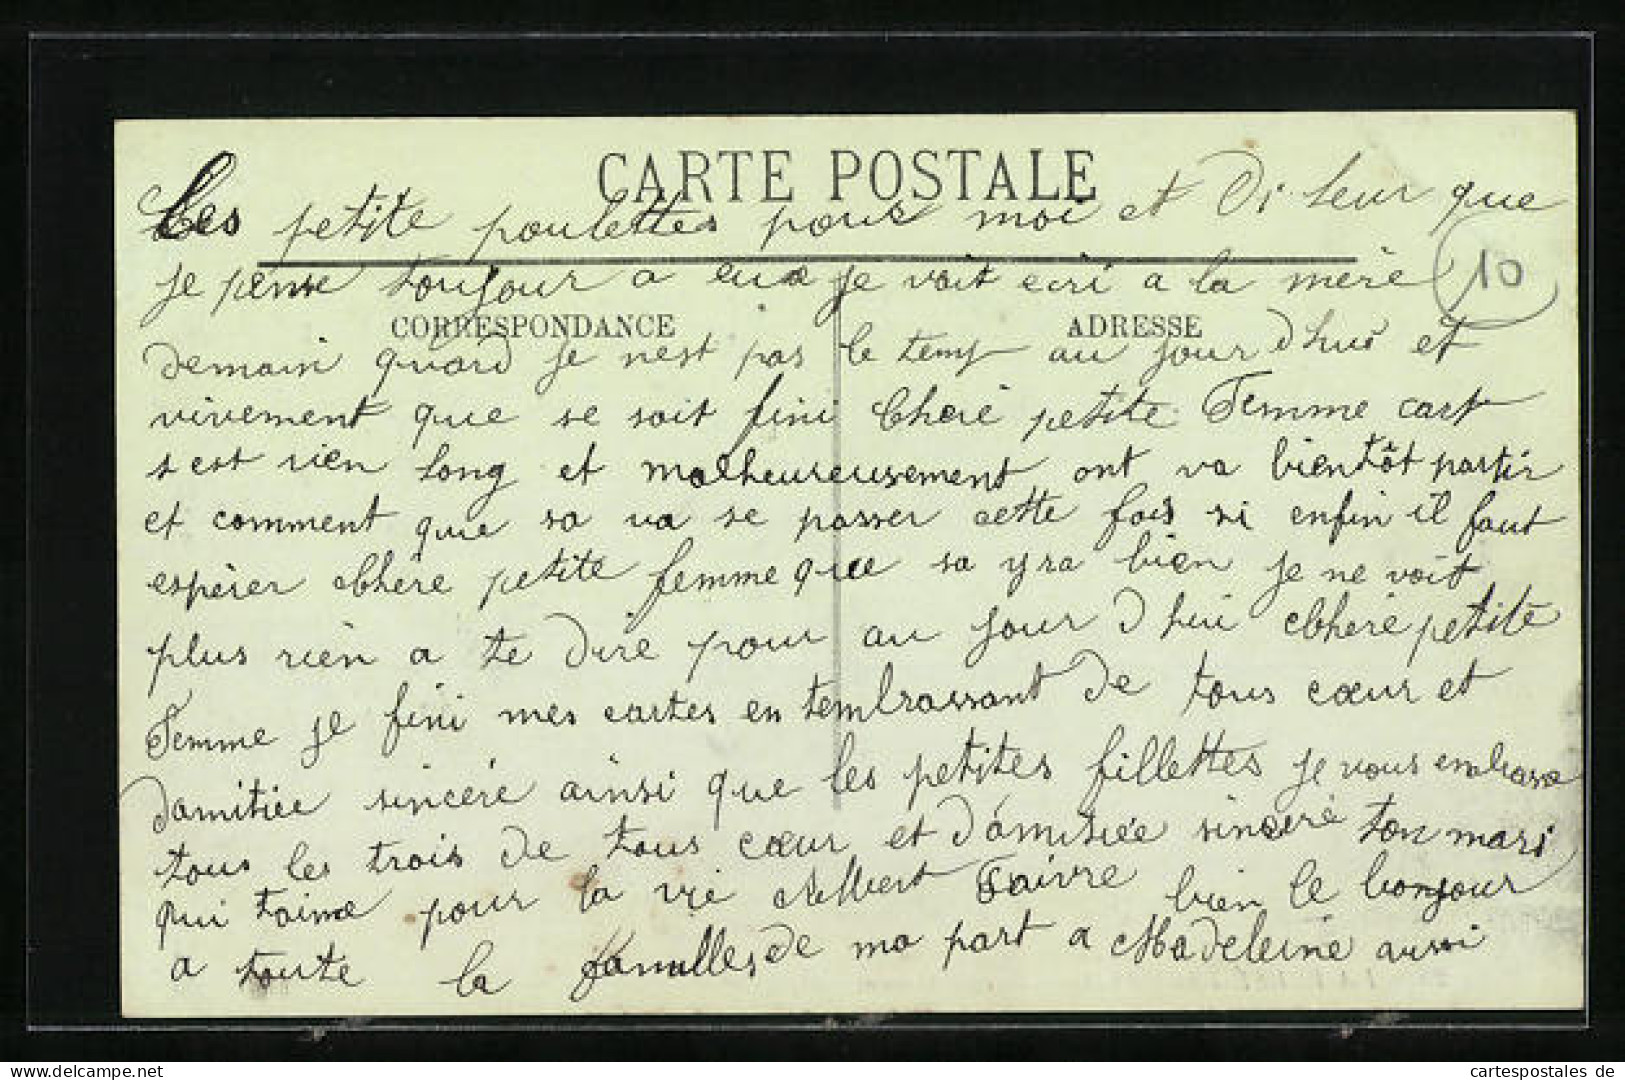 CARTE POSTALE
Ces petite poulettes pour moi et Di leur que
je pense toujour a eux je voit ecri a la mère
10
CORRESPONDANCE
ADRESSE
demain quand je nest pas le temp au jour dhui et
vivement que se soit fini Cheré petite Femme cart
s est rien long et malheureusement ont va bientôt partir
et comment que sa va se passer cette fois si enfin il faut
espèrer Chère petite femme que sa yra bien je ne voit
plus rien a te dire pour au jour d hui Cheré petite
Femme je fini mes cartes en tembrassant de tous cœur et
damitiée sincére ainsi que les petites fillettes je vous embrasse
tous les trois de tous cœur et d'amitiée sinceré ton mari
qui taime pour la vie Albert Faivre bien le bonjour
a toute la familles de ma part a Madeleine aussi
cartespostales de